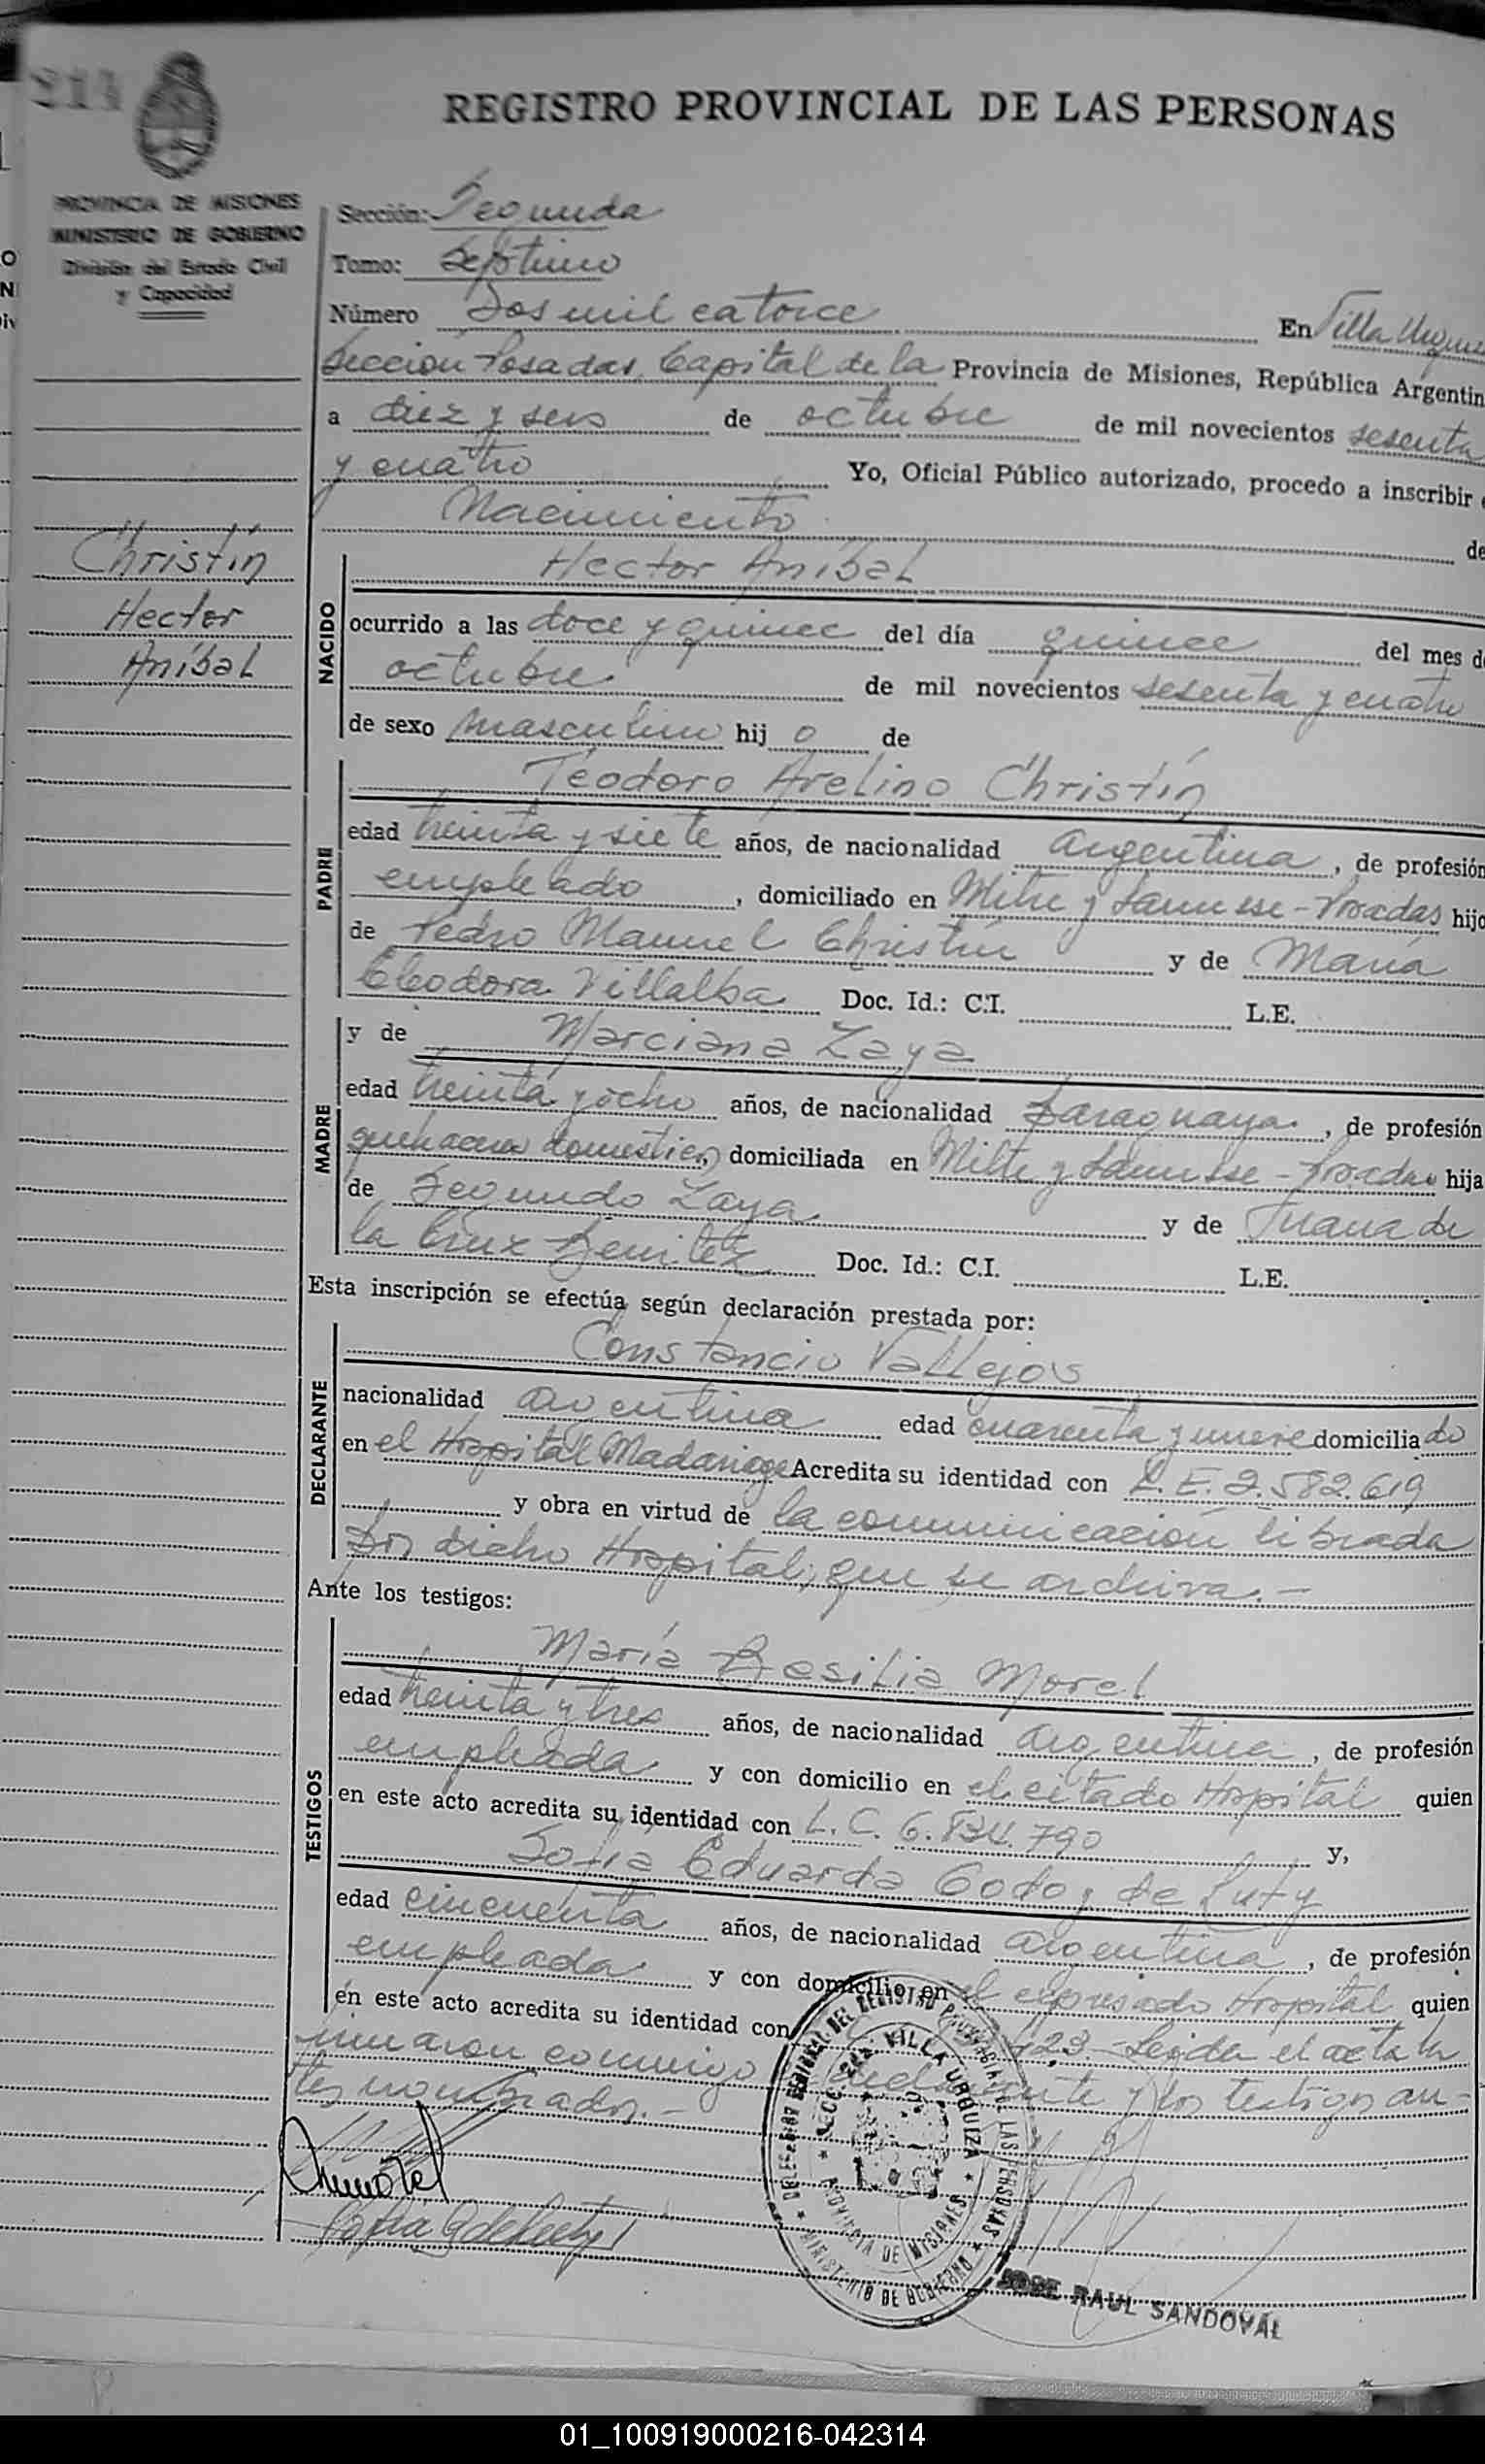 214
REGISTRO PROVINCIAL DE LAS PERSONAS
PROVINCIA DE MISIONES
MINISTERIO DE GOBIERNO
División del Estado Civil
y Capacidad
Sección: Segunda
Tomo: Séptimo
Número Dos mil catorce En Villa Urqui
Sección Posadas, Capital de la Provincia de Misiones, República Argentin
a diez y seis de octubre de mil novecientos sesenta
y cuatro Yo, Oficial Público autorizado, procedo a inscribir
Nacimiento de
Christín
Hector
Aníbal
NACIDO
Hector Aníbal
ocurrido a las doce y quince del día quince del mes d
octubre de mil novecientos sesenta y cuatro
de sexo masculino hij o de
PADRE
Teodoro Avelino Christín
edad treinta y siete años, de nacionalidad argentina, de profesión
empleado, domiciliado en Mitre y Lanusse - Posadas hijo
de Pedro Manuel Christín y de María
Cleodora Villalba Doc. Id.: C.I. L.E.
MADRE
y de Marciana Zaya
edad treinta y ocho años, de nacionalidad paraguaya, de profesión
quehaceres domésticos, domiciliada en Mitre y Lanusse - Posadas hija
de Segundo Zaya y de Juana de
la Cruz Benitez Doc. Id.: C.I. L.E.
Esta inscripción se efectúa según declaración prestada por:
DECLARANTE
Constancio Vallejos
nacionalidad argentina edad cuarenta y nueve domicilia do
en el Hospital Madariaga Acredita su identidad con L.E. 2.582.619
y obra en virtud de la comunicación librada
por dicho Hospital, que se archiva.-
Ante los testigos:
TESTIGOS
María Basilia Morel
edad treinta y tres años, de nacionalidad argentina, de profesión
empleada y con domicilio en el citado Hospital quien
en este acto acredita su identidad con L.C. 6.834.790 y,
Sofía Eduarda Godoy de Luty
edad cincuenta años, de nacionalidad argentina, de profesión
empleada y con domicilio en el expresado Hospital quien
en este acto acredita su identidad con 423.- Leida el acta la
firmaron conmigo el declarante y los testigos an-
tes nombrados.-
DELEGACION REGIONAL DEL REGISTRO PROVINCIAL DE LAS PERSONAS
SECC. 2da. VILLA URQUIZA
PROVINCIA DE MISIONES
MINISTERIO DE GOBIERNO
JOSE RAUL SANDOVAL
01_100919000216-042314